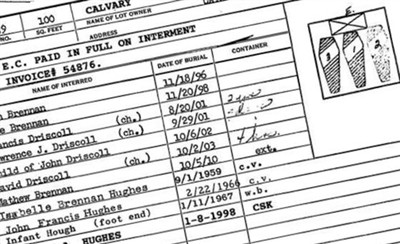 9 100 CALVARY
NO. SQ. FEET NAME OF LOT OWNER
ADDRESS
E.C. PAID IN FULL ON INTERMENT
INVOICE# 54876.
NAME OF INTERRED DATE OF BURIAL CONTAINER
Brennan 11/18/96
Brennan 11/20/98
ncis Driscoll (ch.) 8/20/01
wrence J. Driscoll 9/29/01
ild of John Driscoll (ch.) 10/6/02
avid Driscoll (ch.) 10/2/03
Mathew Brennan 10/5/10 ext.
Isabelle Brennan Hughes 9/1/1959 c.v.
John Francis Hughes 2/22/1966 c.v.
Infant Hough (foot end) 1/11/1967 w.b.
HUGHES 1-8-1998 CSK
E.
3 1 2